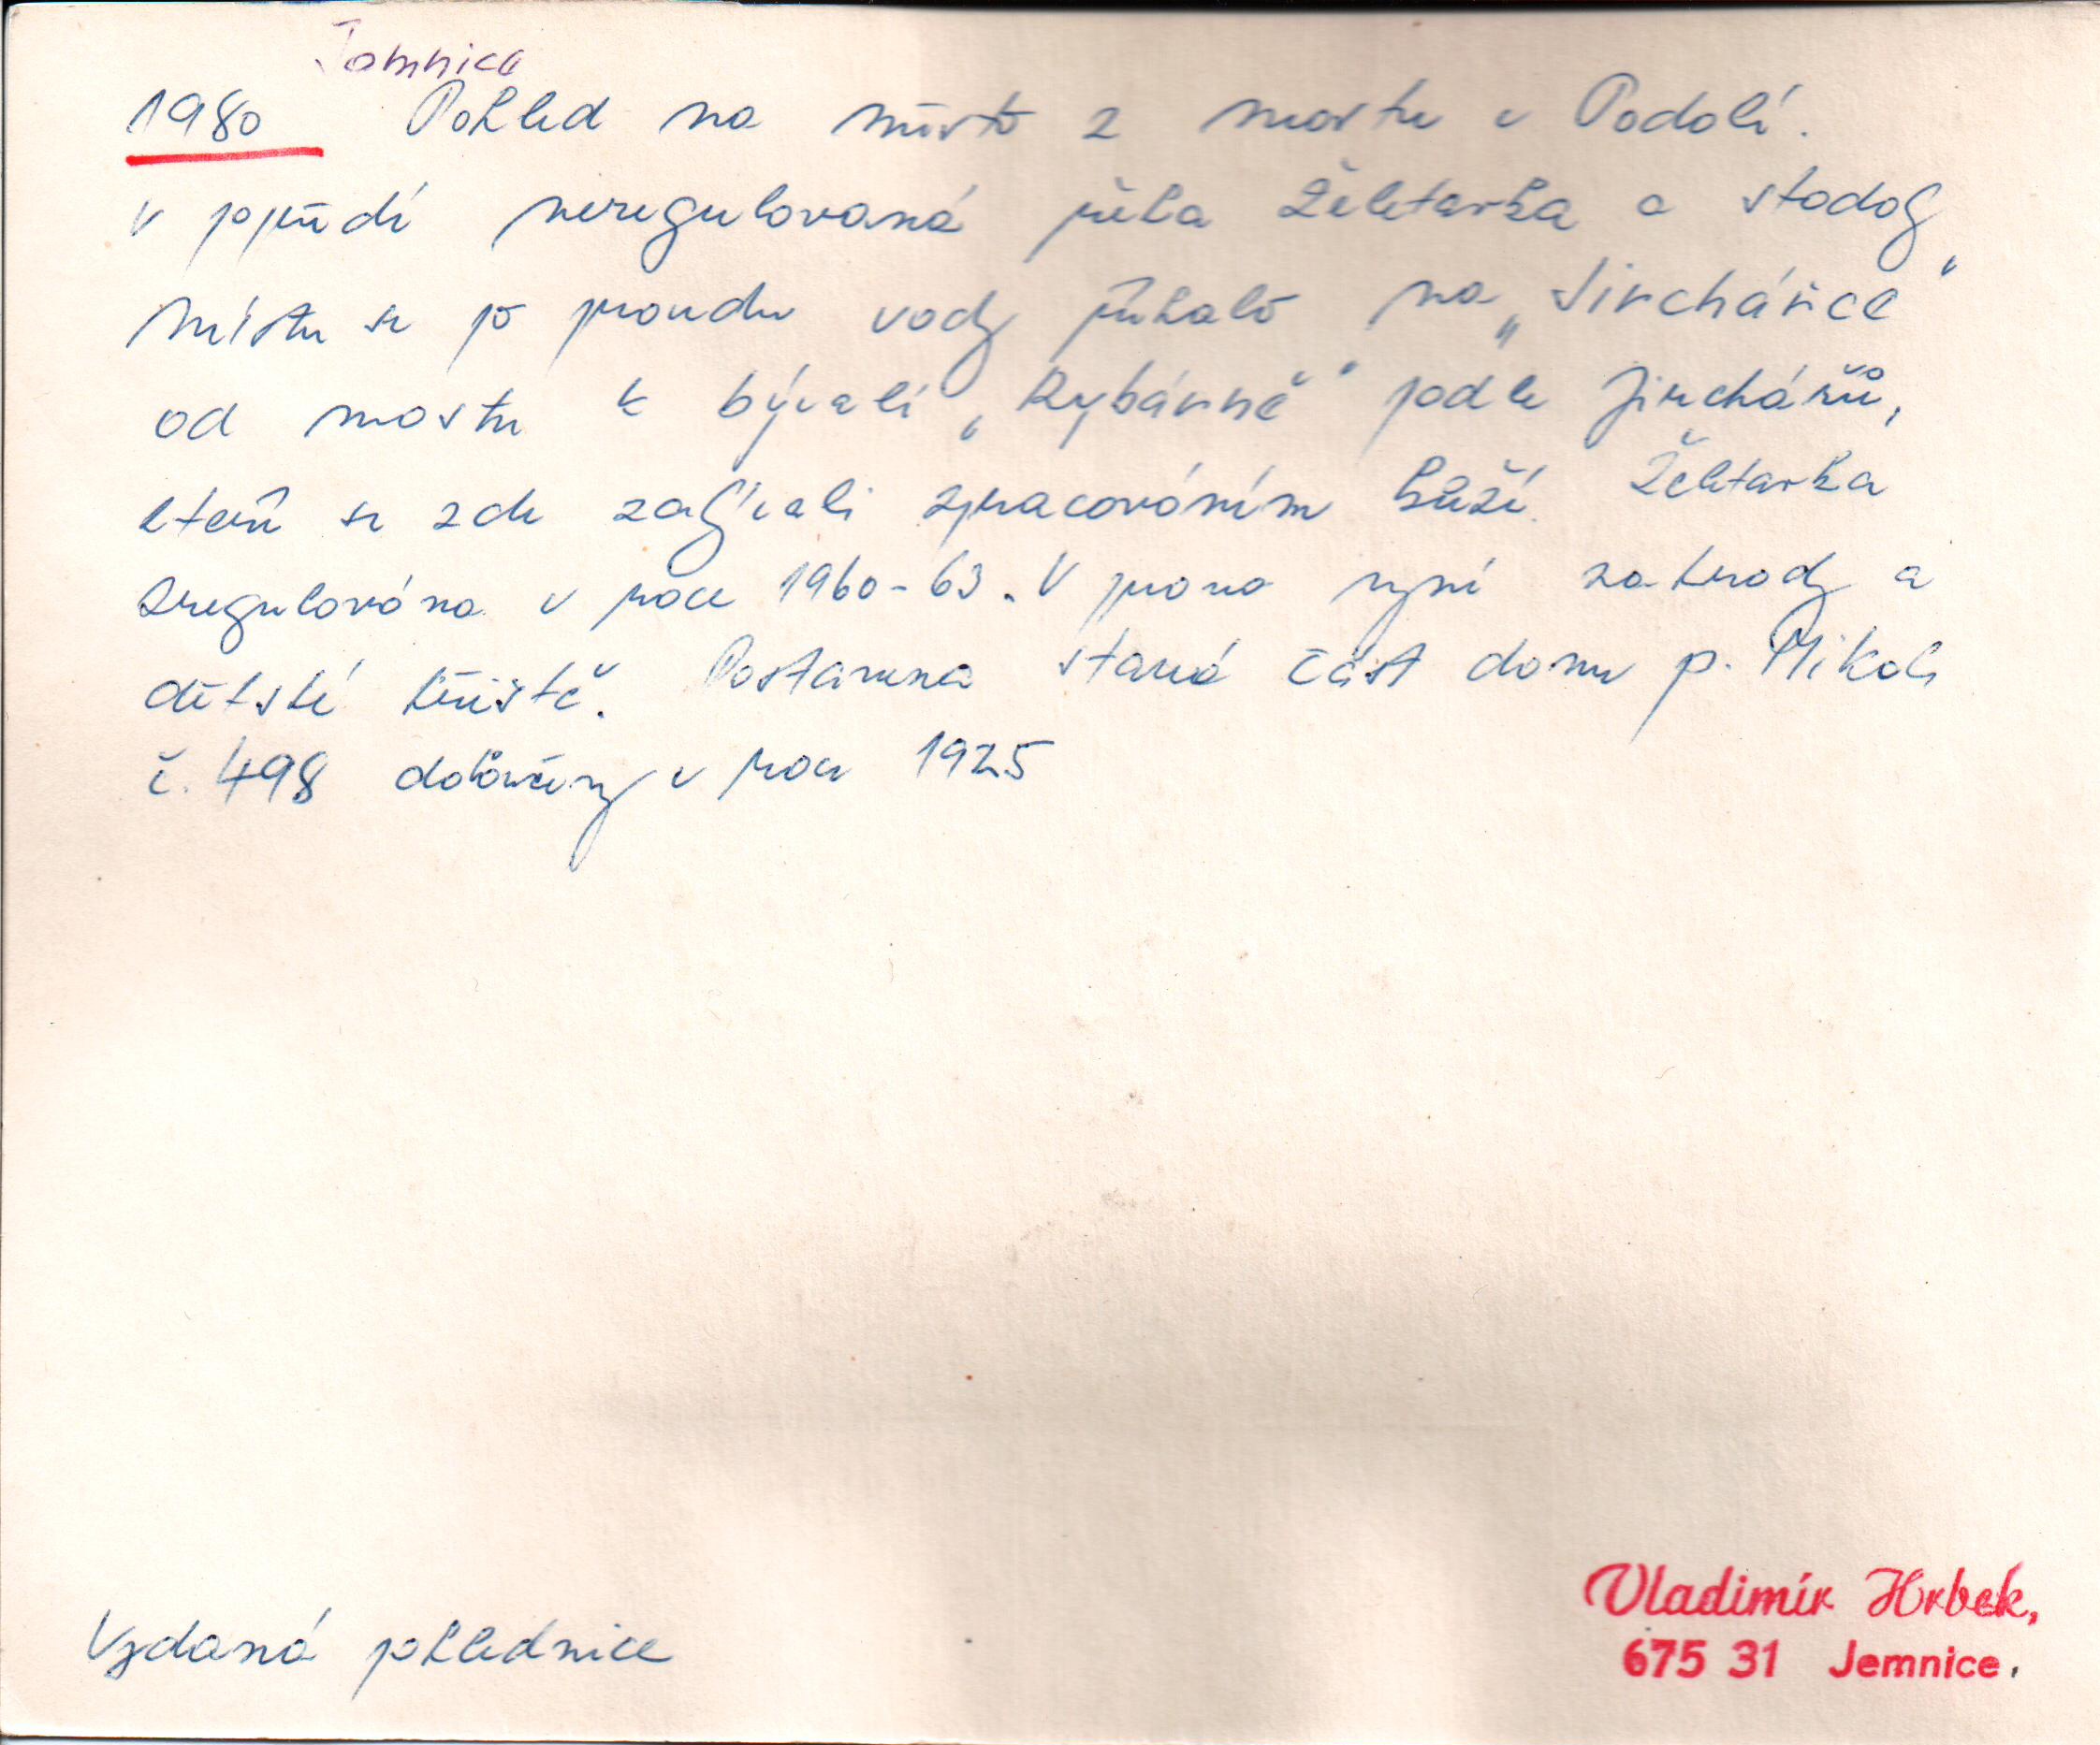 Jemnice
1980 Pohled na město z mostu v Podolí.
V popředí neregulovaná řeka Želetavka a stodoly
Místu se po proudu vody říkalo na „Jirchářce"
od mostu k bývalé „Rybárně" podle Jirchářů,
kteří se zde zabývali zpracováním kůží. Želetavka
zregulována v roce 1960-63. V pravo nyní zahrady a
dětské hřiště. Postavena stará část domu p. Mikoly
č. 498 v roce 1925
Vydaná pohlednice
Vladimír Hrbek,
675 31 Jemnice.